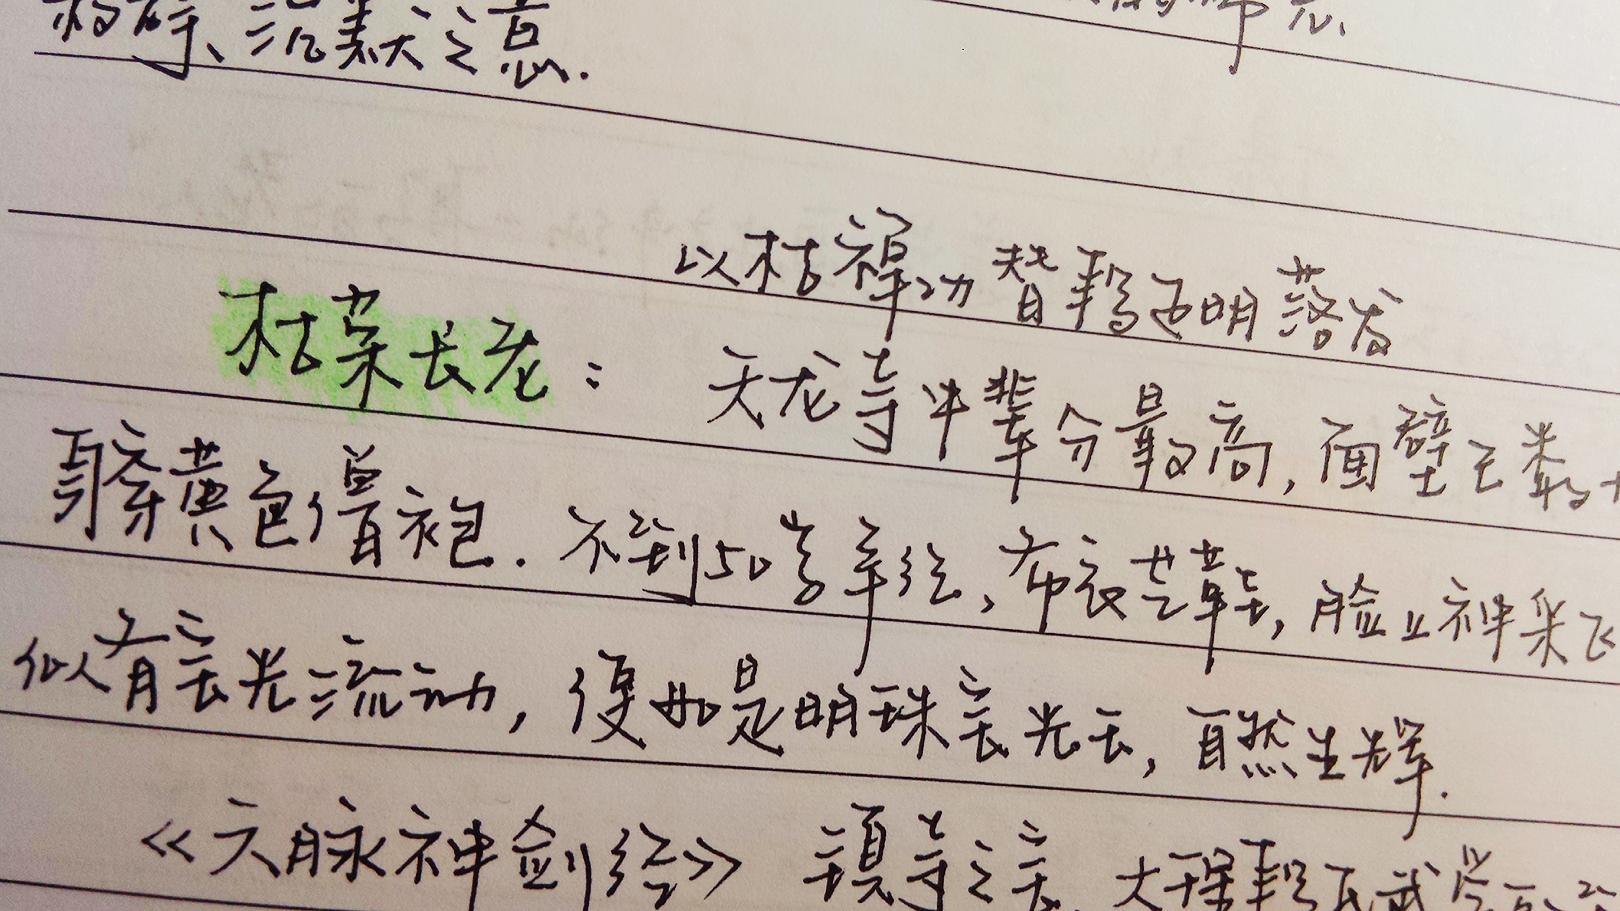 沉默之意.
以枯禅功替段正明落发
枯荣长老： 天龙寺中辈分最高，面壁已数十
穿黄色僧袍. 不到50岁年纪，布衣芒鞋，脸上神采飞
似有宝光流动，便如是明珠宝光玉，自然生辉.
《六脉神剑经》 镇寺之宝. 大理段氏武学